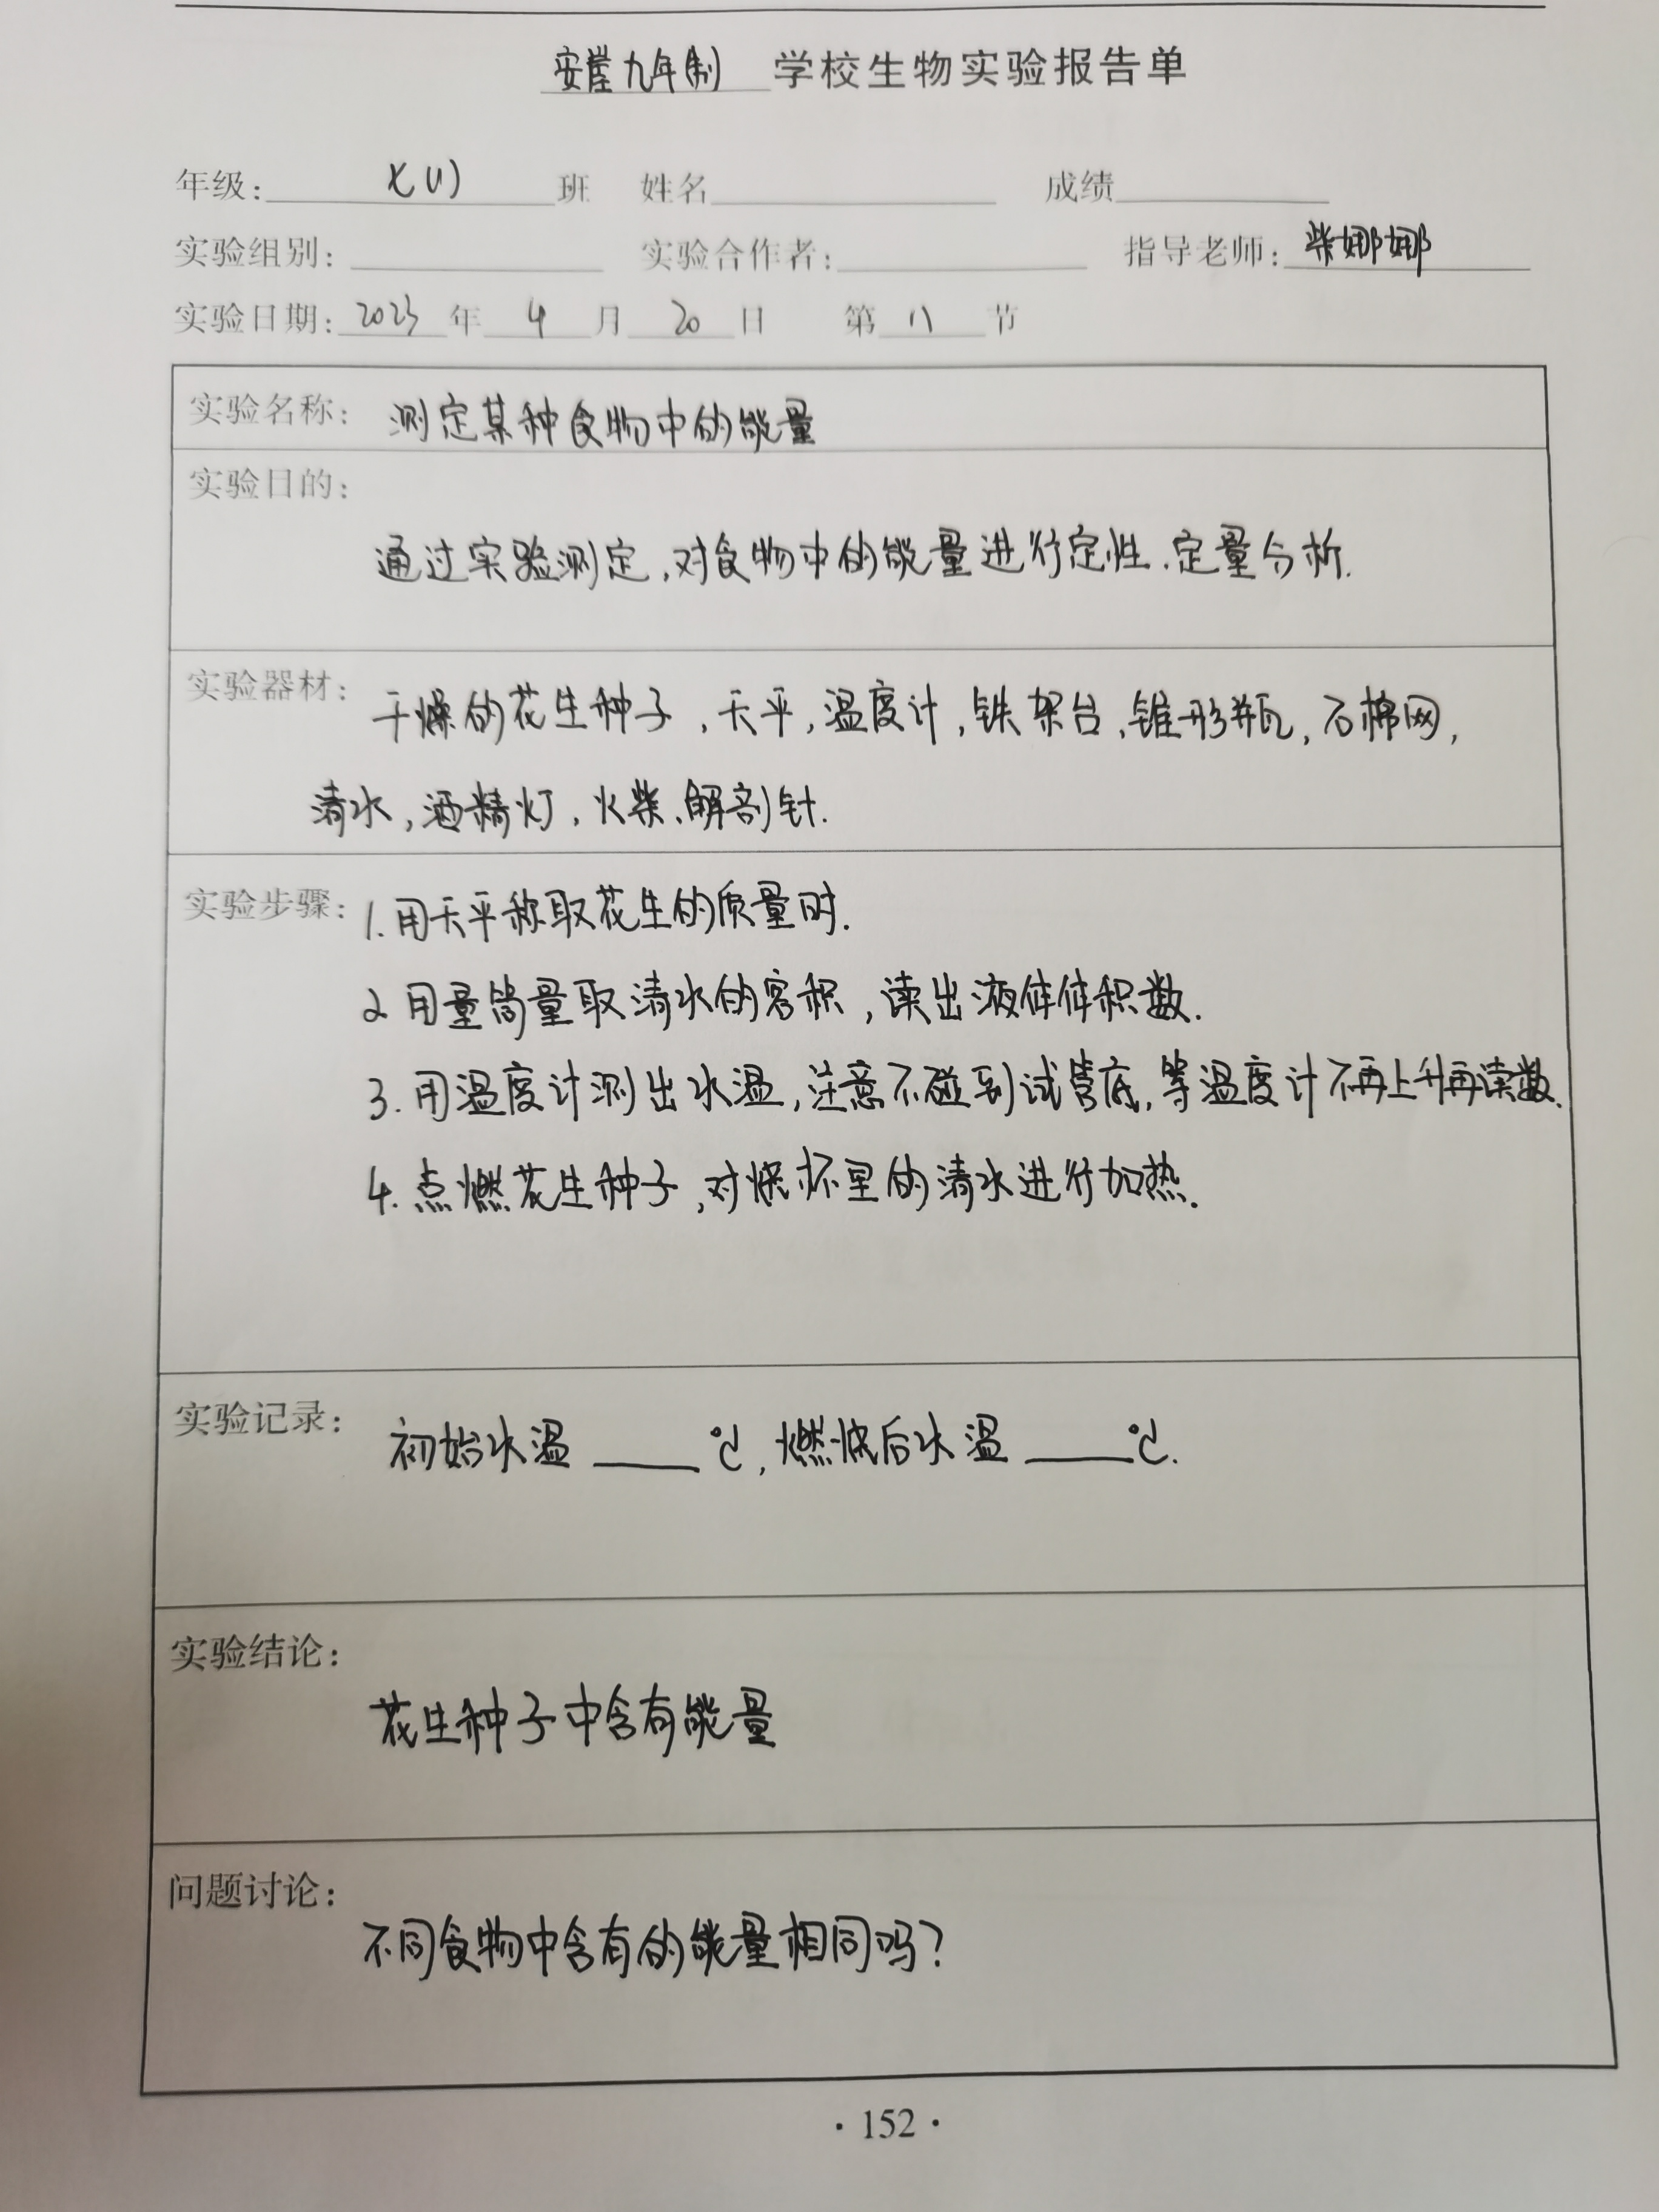 安堂九年制 学校生物实验报告单
年级: 七(1) 班 姓名 成绩
实验组别: 实验合作者: 指导老师: 柴娜娜
实验日期: 2023 年 4 月 20 日 第 八 节
实验名称: 测定某种食物中的能量
实验目的:
通过实验测定,对食物中的能量进行定性.定量分析.
实验器材: 干燥的花生种子,天平,温度计,铁架台,锥形瓶,石棉网,
清水,酒精灯,火柴、解剖针.
实验步骤: 1.用天平称取花生的质量时.
2 用量筒量取清水的容积,读出液体体积数.
3.用温度计测出水温,注意不碰到试管底,等温度计不再上升再读数.
4.点燃花生种子,对烧杯里的清水进行加热.
实验记录: 初始水温 ____ ℃,燃烧后水温 ____℃.
实验结论:
花生种子中含有能量
问题讨论:
不同食物中含有的能量相同吗?
·152·